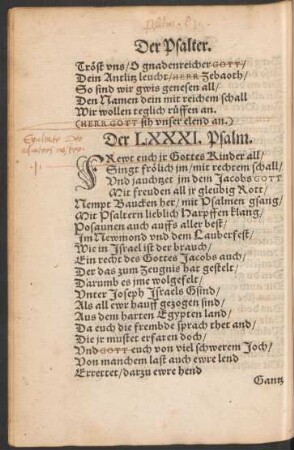 Der Psalter.
Tröst vns/ O gnadenreicher GOTT/
Dein Antlitz leucht/ HERR Zebaoth/
So sind wir gwis genesen all/
Den Namen dein mit reichem schall
Wir wollen teglich rüffen an.
(HERR GOTT sih vnser elend an.)
Exultate Deo
adiutori nostro.
Der LXXXI. Psalm.
FRewt euch jr Gottes Kinder all/
Singt frölich jm/ mit rechtem schall/
Vnd jauchtzet jm dem Jacobs GOTT
Mit freuden all jr gleubig Rott/
Nempt Baucken her/ mit Psalmen gsang/
Mit Psaltern lieblich Harpffen klang/
Posaunen auch auffs aller best/
Im Newmond vnd dem Lauberfest/
Wie in Israel ist der brauch/
Ein recht des Gottes Jacobs auch/
Der das zum Zeugnis hat gestelt/
Darumb es jme wolgefelt/
Vnter Joseph Israels Gsind/
Als all ewr hauff gezogen sind/
Aus dem harten Egypten land/
Da euch die frembde sprach thet and/
Die jr mustet erfaren doch/
Vnd GOTT euch von viel schwerem Joch/
Von manchem last auch ewre lend
Errettet/ dartzu ewre hend
Gantz